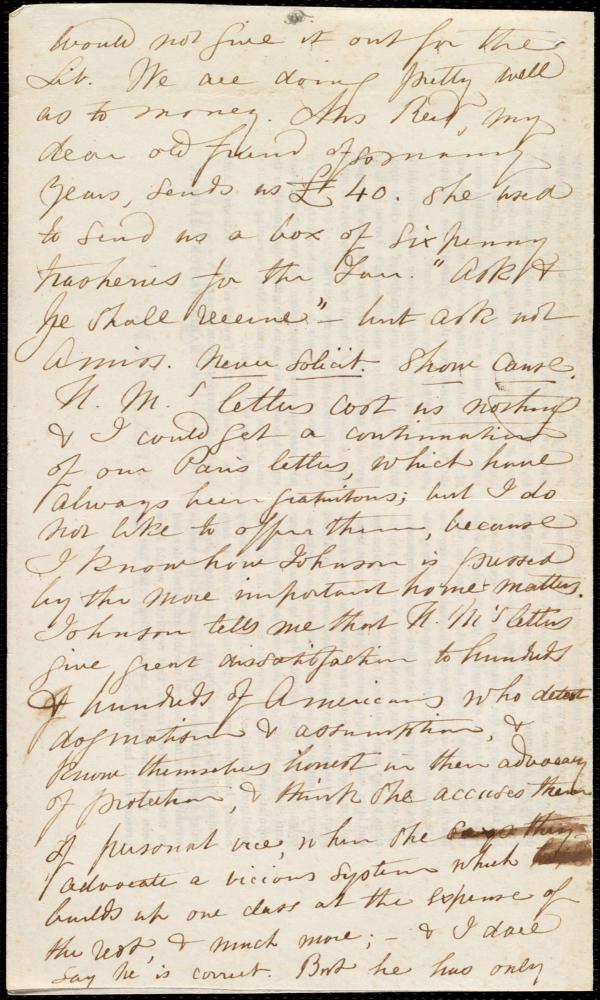 would not give it out for the
Lib. We are doing pretty well
as to money. Mrs Reid, my
dear old friend of so many
years, sends us £40. She used
to send us a box of sixpenny
trasheries for the Fair. "Ask &
Ye shall receive" – but ask not
amiss. Never solicit. Show cause.
H. M.'s letters cost us nothing
& I could get a continuation
of our Paris letters, which have
always been gratuitous; but I do
not like to offer them, because
I know how Johnson is pressed
by the more important home-matters.
Johnson tells me that H. M's letters
give great dissatisfaction to hundreds
& hundreds of Americans who detest
dogmatism & assumption, &
know themselves honest in their advocacy
of protection, & think she accuses them
of personal vice, when she says they
advocate a vicious system which
builds up one class at the expense of
the rest, & much more; – & I dare
say he is correct. But he has only